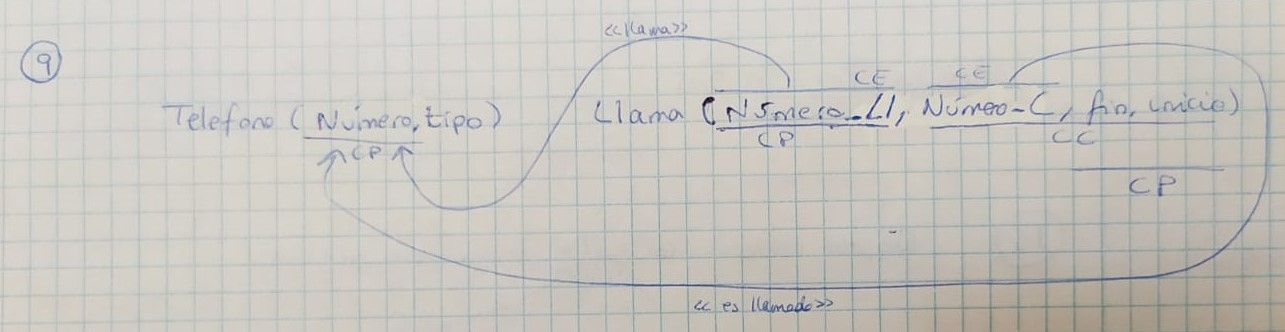 <<llama>>
9
CE CE
Telefono (Número, tipo) Llama (Número_Ll, Número-C, fin, inicio)
CP CP CC
CP
<< es llamado>>